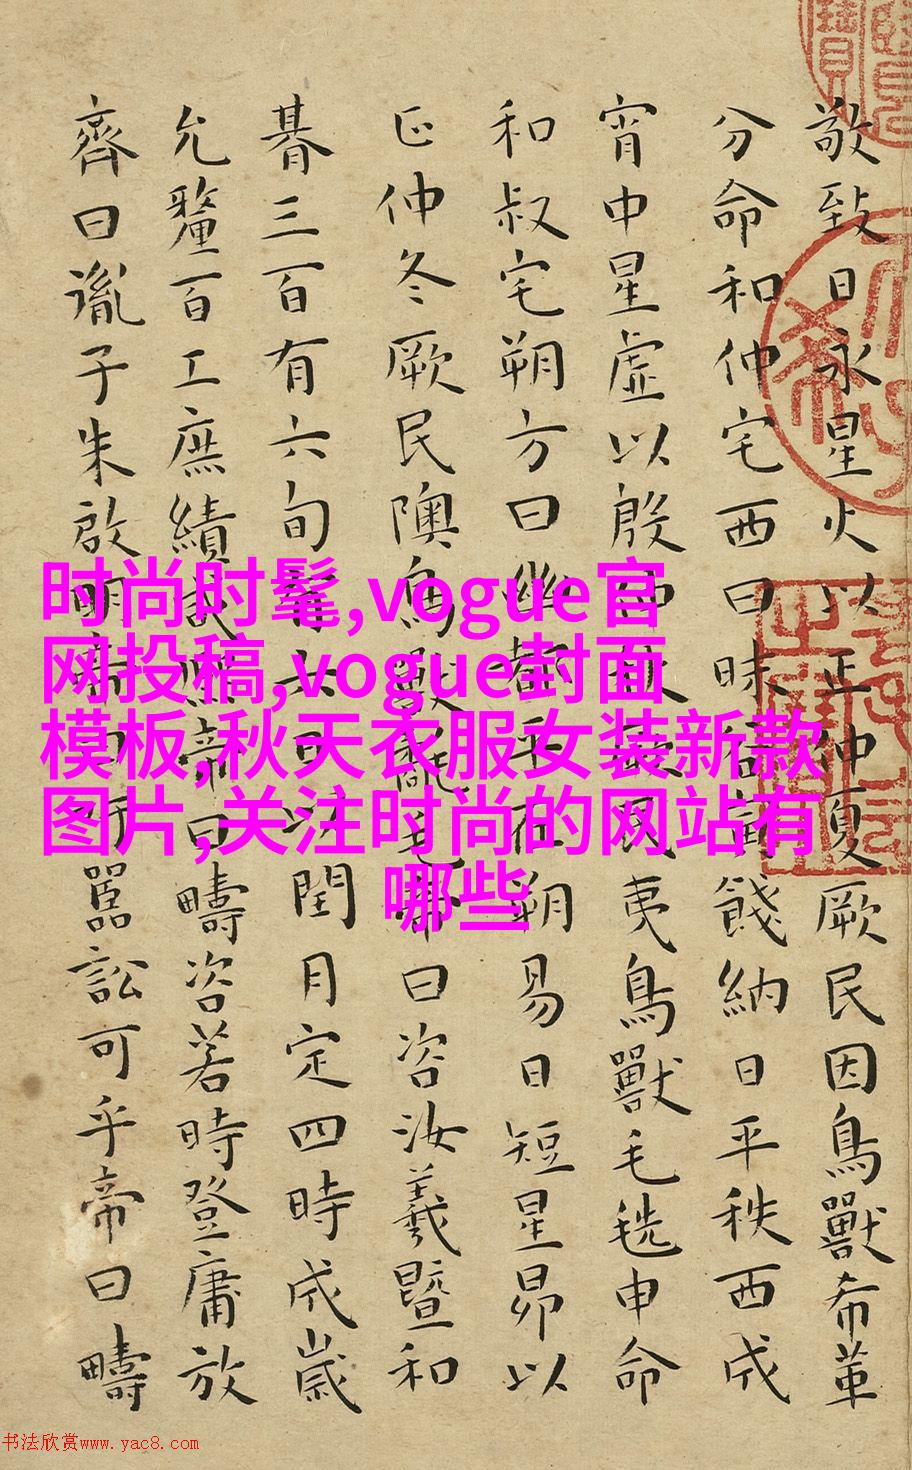 敬致日永星火以正仲夏厥民因鳥獸希革
分命和仲宅西曰昧谷寅餞納日平秩西成
宵中星虛以殷仲秋厥民夷鳥獸毛毨申命
和叔宅朔方曰幽都平在朔易日短星昴以
正仲冬厥民隩鳥獸氄毛帝曰咨汝羲暨和
朞三百有六旬有六日以閏月定四時成歲
允釐百工庶績咸熙帝曰疇咨若時登庸放
齊曰胤子朱啟明帝曰吁嚚訟可乎帝曰疇
时尚时髦,vogue官
网投稿,vogue封面
模板,秋天衣服女装新款
图片,关注时尚的网站有
哪些
书法欣赏www.yac8.com